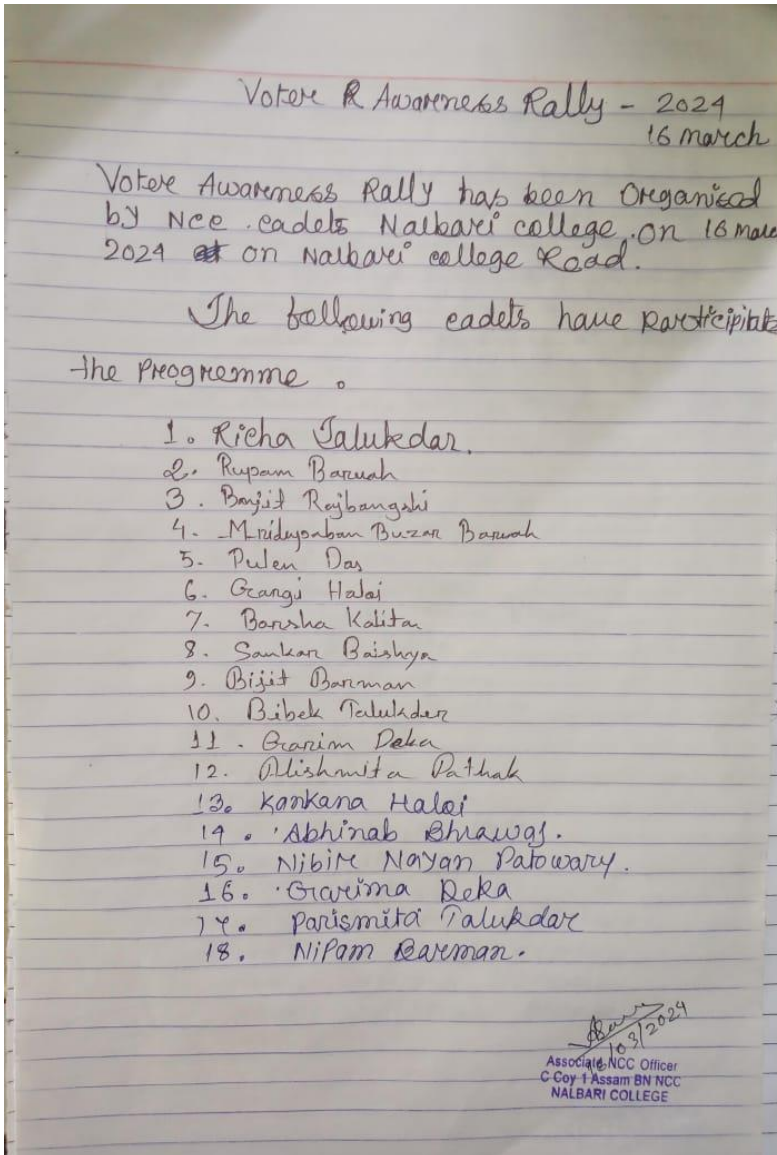 Voter R Awareness Rally - 2024
16 march
Voter Awareness Rally has been Organised
by Ncc cadets Nalbari college on 16 marc
2024 at on Nalbari college Road.
The following cadets have participitate
the programme.
1. Richa Talukdar.
2. Rupam Baruah
3. Banjit Rajbangshi
4. Mridupaban Buzar Baruah
5. Pulen Das
6. Gangi Haloi
7. Barsha Kalita
8. Sankar Baishya
9. Bijit Barman
10. Bibek Talukder
11. Garim Deka
12. Alishmita Pathak
13. Kankana Haloi
14. Abhinab
15. Nibir Nayan Patowary.
16. Garima Deka
17. Parismita Talukdar
18. Nipam Barman.
16/03/2024
Associate NCC Officer
C Coy 1 Assam BN NCC
NALBARI COLLEGE